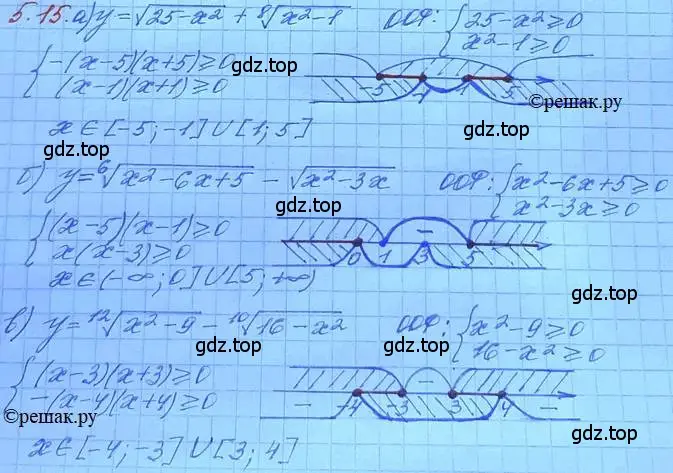 5.15. а) y = √(25-x²) + ⁸√(x²-1) ООФ: { 25-x² ≥ 0
x²-1 ≥ 0
{ -(x-5)(x+5) ≥ 0 gdz.top
(x-1)(x+1) ≥ 0
-5 -1 1 5
©решак.ру
x ∈ [-5; -1] ∪ [1; 5]
gdz.top gdz.top
б) y = ⁶√(x²-6x+5) - √(x²-3x) ООФ: { x²-6x+5 ≥ 0
x²-3x ≥ 0
gdz.top
{ (x-5)(x-1) ≥ 0
x(x-3) ≥ 0
-
0 1 3 5
x ∈ (-∞; 0] ∪ [5; +∞)
gdz.top gdz.top
в) y = ¹²√(x²-9) - ¹⁰√(16-x²) ООФ: { x²-9 ≥ 0
16-x² ≥ 0
gdz.top gdz.top
{ (x-3)(x+3) ≥ 0
-(x-4)(x+4) ≥ 0
-
- -4 -3 3 4 -
©решак.ру
x ∈ [-4; -3] ∪ [3; 4]
gdz.top gdz.top